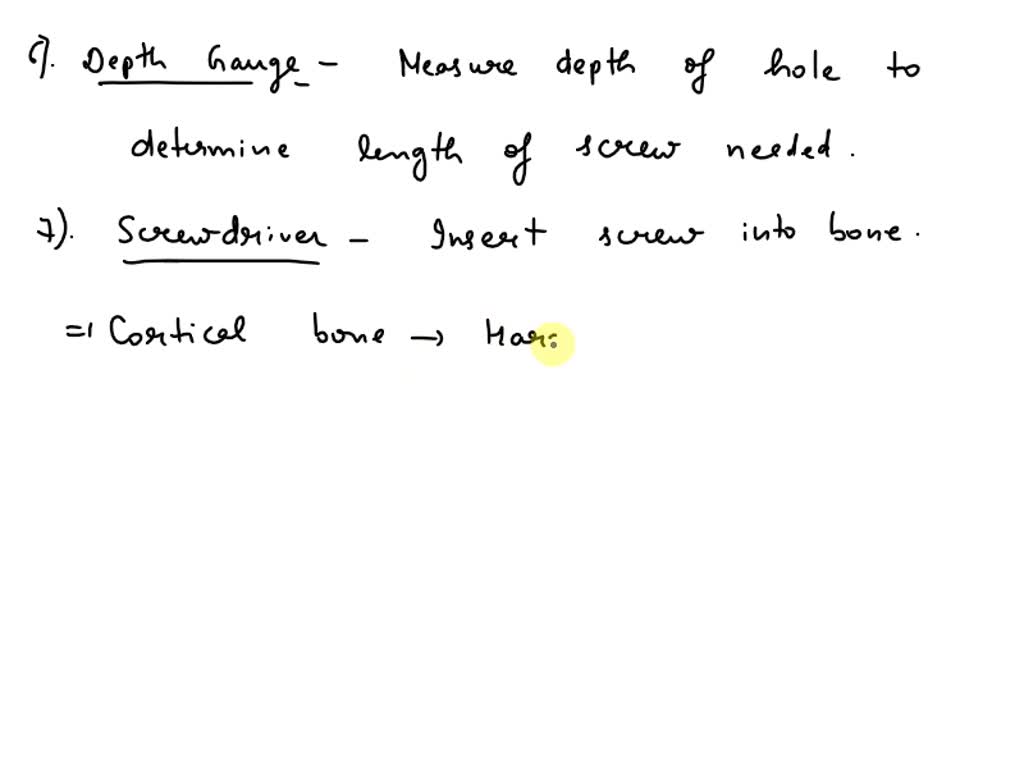 6). Depth Gauge – Measure depth of hole to
determine length of screw needed.
7). Screwdriver – Insert screw into bone.
=) Cortical bone → Har